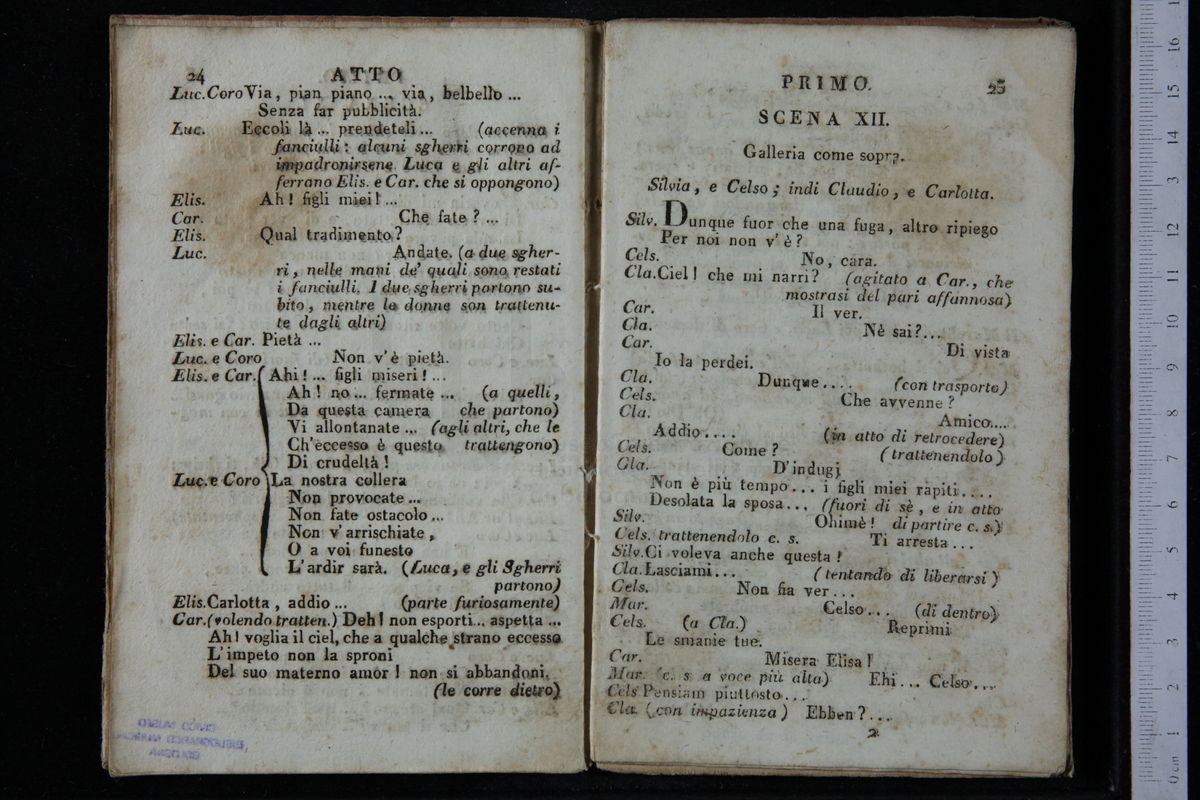 24 ATTO
Luc. Coro Via, pian piano ... via, belbello ...
Senza far pubblicità.
Luc. Eccoli là ... prendeteli ... (accenna i
fanciulli: alcuni sgherri corrono ad
impadronirsene. Luca e gli altri af-
ferrano Elis. e Car. che si oppongono)
Elis. Ah! figli miei! ...
Car. Che fate? ...
Elis. Qual tradimento?
Luc. Andate. (a due sgher-
ri, nelle mani de' quali sono restati
i fanciulli. I due sgherri partono su-
bito, mentre le donne son trattenu-
te dagli altri)
Elis. e Car. Pietà ...
Luc. e Coro Non v'è pietà.
Elis. e Car. Ahi! ... figli miseri! ...
Ah! no ... fermate ... (a quelli,
Da questa camera che partono)
Vi allontanate ... (agli altri, che le
Ch'eccesso è questo trattengono)
Di crudeltà!
Luc. e Coro La nostra collera
Non provocate ...
Non fate ostacolo ...
Non v'arrischiate,
O a voi funesto
L'ardir sarà. (Luca, e gli Sgherri
partono)
Elis. Carlotta, addio ... (parte furiosamente)
Car. (volendo tratten.) Deh! non esporti... aspetta ...
Ah! voglia il ciel, che a qualche strano eccesso
L'impeto non la sproni
Del suo materno amor! non si abbandoni.
(le corre dietro)
PRIMO. 25
SCENA XII.
Galleria come sopra.
Silvia, e Celso; indi Claudio, e Carlotta.
Silv. Dunque fuor che una fuga, altro ripiego
Per noi non v'è?
Cels. No, cara.
Cla. Ciel! che mi narri? (agitato a Car., che
mostrasi del pari affannosa)
Car. Il ver.
Cla. Nè sai?...
Car. Di vista
Io la perdei.
Cla. Dunque.... (con trasporto)
Cels. Che avvenne?
Cla. Amico....
Addio.... (in atto di retrocedere)
Cels. Come? (trattenendolo)
Cla. D'indugj
Non è più tempo... i figli miei rapiti....
Desolata la sposa... (fuori di sè, e in atto
Silv. Ohimè! di partire c. s.)
Cels. trattenendolo c. s. Ti arresta...
Silv. Ci voleva anche questa!
Cla. Lasciami... (tentando di liberarsi)
Cels. Non fia ver...
Mar. Celso... (di dentro)
Cels. (a Cla.) Reprimi
Le smanie tue.
Car. Misera Elisa!
Mar. (c. s. a voce più alta) Ehi... Celso...
Cels Pensiam piuttosto...
Cla. (con impazienza) Ebben?...
2